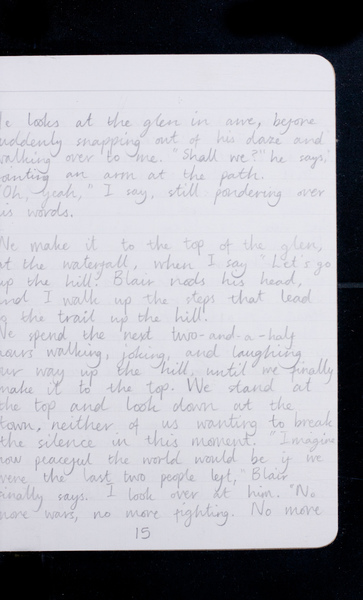 He looks at the glen in awe, before
suddenly snapping out of his daze and
walking over to me. "Shall we?" he says,
pointing an arm at the path.
"Oh, yeah," I say, still pondering over
his words.
We make it to the top of the glen,
at the waterfall, when I say "Let's go
up the hill." Blair nods his head,
and I walk up the steps that lead
to the trail up the hill.
We spend the next two-and-a-half
hours walking, joking, and laughing
our way up the hill, until we finally
make it to the top. We stand at
the top and look down at the
town, neither of us wanting to break
the silence in this moment. "Imagine
how peaceful the world would be if we
were the last two people left," Blair
finally says. I look over at him. "No
more wars, no more fighting. No more
15